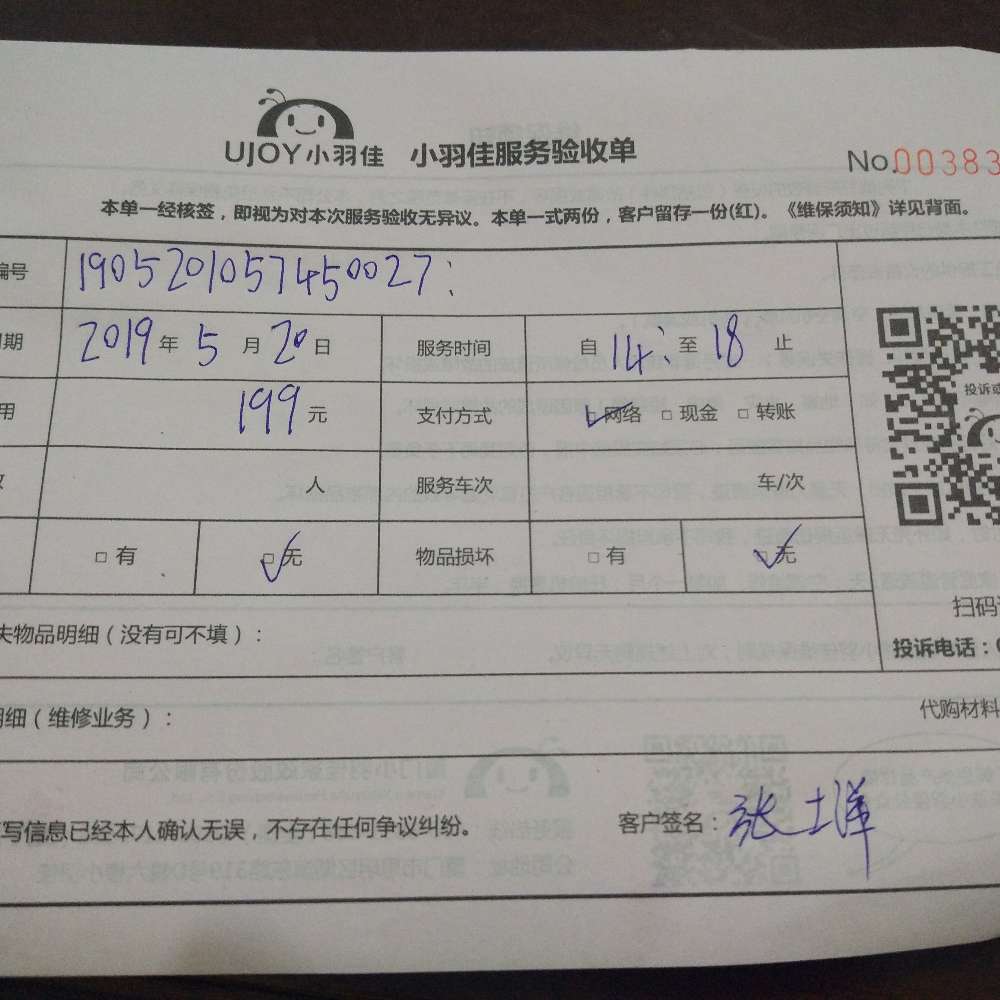 UJOY小羽佳 小羽佳服务验收单
No.00383
本单一经核签，即视为对本次服务验收无异议。本单一式两份，客户留存一份(红)。《维保须知》详见背面。
编号 1905201057450027
期 2019年5月20日 服务时间 自14:至18止
用 199元 支付方式 ☑网络 □现金 □转账
人 服务车次 车/次
□有 ☑无 物品损坏 □有 ☑无
投诉或
扫码
失物品明细（没有可不填）：
投诉电话：0
明细（维修业务）：
代购材料
写信息已经本人确认无误，不存在任何争议纠纷。
客户签名：张土洋